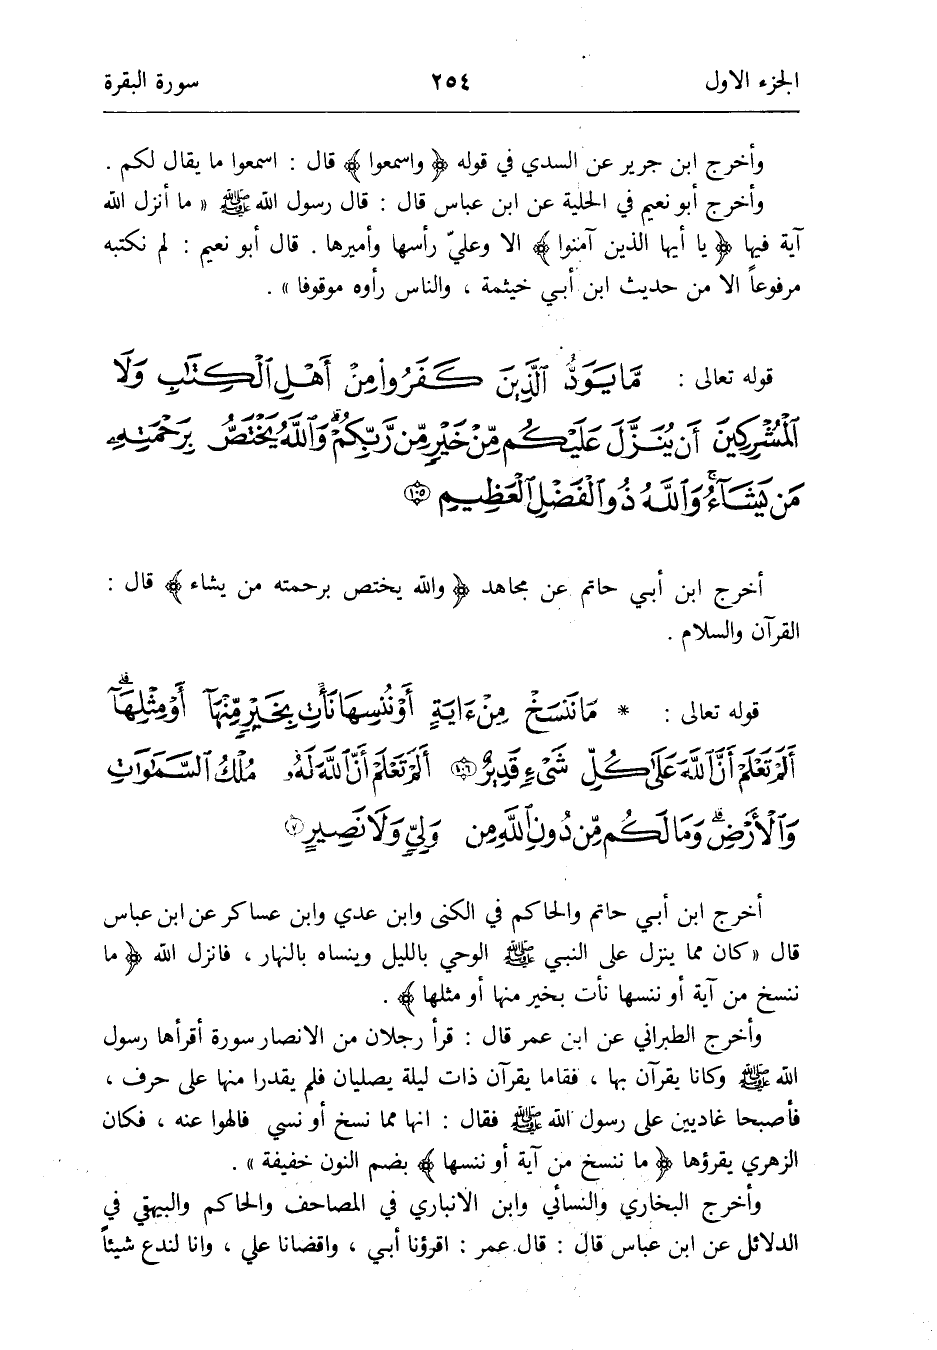 الجزء الاول ٢٥٤ سورة البقرة
وأخرج ابن جرير عن السدي في قوله ﴿ واسمعوا ﴾ قال : اسمعوا ما يقال لكم .
وأخرج أبو نعيم في الحلية عن ابن عباس قال : قال رسول الله ﷺ « ما أنزل الله
آية فيها ﴿ يا أيها الذين آمنوا ﴾ الا وعليّ رأسها وأميرها . قال أبو نعيم : لم نكتبه
مرفوعاً الا من حديث ابن أبـي خيثمة ، والناس رأوه موقوفا » .
قوله تعالى : مَّا يَوَدُّ ٱلَّذِينَ كَفَرُوا۟ مِنْ أَهْلِ ٱلْكِتَٰبِ وَلَا
ٱلْمُشْرِكِينَ أَن يُنَزَّلَ عَلَيْكُم مِّنْ خَيْرٍ مِّن رَّبِّكُمْ ۗ وَٱللَّهُ يَخْتَصُّ بِرَحْمَتِهِۦ
مَن يَشَآءُ ۚ وَٱللَّهُ ذُو ٱلْفَضْلِ ٱلْعَظِيمِ ١٠٥
أخرج ابن أبـي حاتم عن مجاهد ﴿ والله يختص برحمته من يشاء ﴾ قال :
القرآن والسلام .
قوله تعالى : * مَا نَنسَخْ مِنْ ءَايَةٍ أَوْ نُنسِهَا نَأْتِ بِخَيْرٍ مِّنْهَآ أَوْ مِثْلِهَآ ۗ
أَلَمْ تَعْلَمْ أَنَّ ٱللَّهَ عَلَىٰ كُلِّ شَىْءٍ قَدِيرٌ ١٠٦ أَلَمْ تَعْلَمْ أَنَّ ٱللَّهَ لَهُۥ مُلْكُ ٱلسَّمَٰوَٰتِ
وَٱلْأَرْضِ ۗ وَمَا لَكُم مِّن دُونِ ٱللَّهِ مِن وَلِىٍّ وَلَا نَصِيرٍ ٧
أخرج ابن أبـي حاتم والحاكم في الكنى وابن عدي وابن عساكر عن ابن عباس
قال « كان مما ينزل على النبي ﷺ الوحي بالليل وينساه بالنهار ، فانزل الله ﴿ ما
ننسخ من آية أو ننسها نأت بخير منها أو مثلها ﴾ .
وأخرج الطبراني عن ابن عمر قال : قرأ رجلان من الانصار سورة أقرأها رسول
الله ﷺ وكانا يقرآن بها ، فقاما يقرآن ذات ليلة يصليان فلم يقدرا منها على حرف ،
فأصبحا غاديين على رسول الله ﷺ فقال : انها مما نسخ أو نسي فالهوا عنه ، فكان
الزهري يقرؤها ﴿ ما ننسخ من آية أو ننسها ﴾ بضم النون خفيفة » .
وأخرج البخاري والنسائي وابن الانباري في المصاحف والحاكم والبيهقي في
الدلائل عن ابن عباس قال : قال عمر : اقرؤنا أبـي ، واقضانا علي ، وانا لندع شيئاً